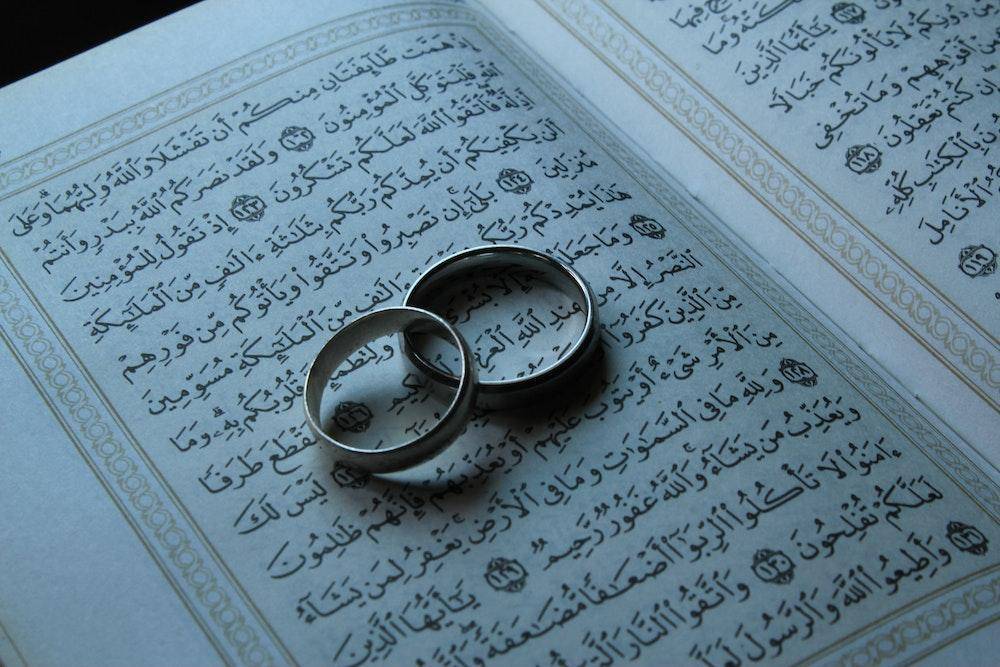 فِيهَا
يَٰٓأَيُّهَا ٱلَّذِينَ
دُونِكُمْ لَا يَأْلُونَكُمْ خَبَالًا
مِنْ أَفْوَٰهِهِمْ وَمَا تُخْفِى
إِن كُنتُمْ تَعْقِلُونَ ١١٨
بِٱلْكِتَٰبِ كُلِّهِۦ
ٱلْأَنَامِلَ
١١٩
إِذْ هَمَّت طَّآئِفَتَانِ مِنكُمْ أَن تَفْشَلَا وَٱللَّهُ وَلِيُّهُمَا وَعَلَى
ٱللَّهِ فَلْيَتَوَكَّلِ ٱلْمُؤْمِنُونَ ١٢٢ وَلَقَدْ نَصَرَكُمُ ٱللَّهُ بِبَدْرٍ وَأَنتُمْ
أَذِلَّةٌ فَٱتَّقُوا۟ ٱللَّهَ لَعَلَّكُمْ تَشْكُرُونَ ١٢٣ إِذْ تَقُولُ لِلْمُؤْمِنِينَ
أَلَن يَكْفِيَكُمْ أَن يُمِدَّكُمْ رَبُّكُم بِثَلَٰثَةِ ءَالَٰفٍ مِّنَ ٱلْمَلَٰٓئِكَةِ
مُنزَلِينَ ١٢٤ بَلَىٰٓ إِن تَصْبِرُوا۟ وَتَتَّقُوا۟ وَيَأْتُوكُم مِّن فَوْرِهِمْ
هَٰذَا يُمْدِدْكُمْ رَبُّكُم ءَالَٰفٍ مِّنَ ٱلْمَلَٰٓئِكَةِ مُسَوِّمِينَ
١٢٥ وَمَا إِلَّا بُشْرَىٰ قُلُوبُكُم بِهِۦ وَمَا
ٱلنَّصْرُ إِلَّا عِندِ ٱللَّهِ ١٢٦ لِيَقْطَعَ طَرَفًا
مِّنَ ٱلَّذِينَ كَفَرُوٓا۟ لَيْسَ لَكَ
مِنَ ٱلْأَمْرِ شَىْءٌ أَوْ يَتُوبَ عَلَيْهِمْ أَوْ يُعَذِّبَهُمْ فَإِنَّهُمْ ظَٰلِمُونَ
١٢٨ وَلِلَّهِ مَا فِى ٱلسَّمَٰوَٰتِ وَمَا فِى ٱلْأَرْضِ يَغْفِرُ لِمَن يَشَآءُ
وَيُعَذِّبُ مَن يَشَآءُ وَٱللَّهُ غَفُورٌ رَّحِيمٌ ١٢٩ يَٰٓأَيُّهَا ٱلَّذِينَ
ءَامَنُوا۟ لَا تَأْكُلُوا۟ ٱلرِّبَوٰٓا۟ أَضْعَٰفًا مُّضَٰعَفَةً وَٱتَّقُوا۟
لَعَلَّكُمْ تُفْلِحُونَ ١٣٠ وَٱتَّقُوا۟ ٱلنَّارَ ٱلَّتِىٓ
١٣١ وَأَطِيعُوا۟ ٱللَّهَ وَٱلرَّسُولَ